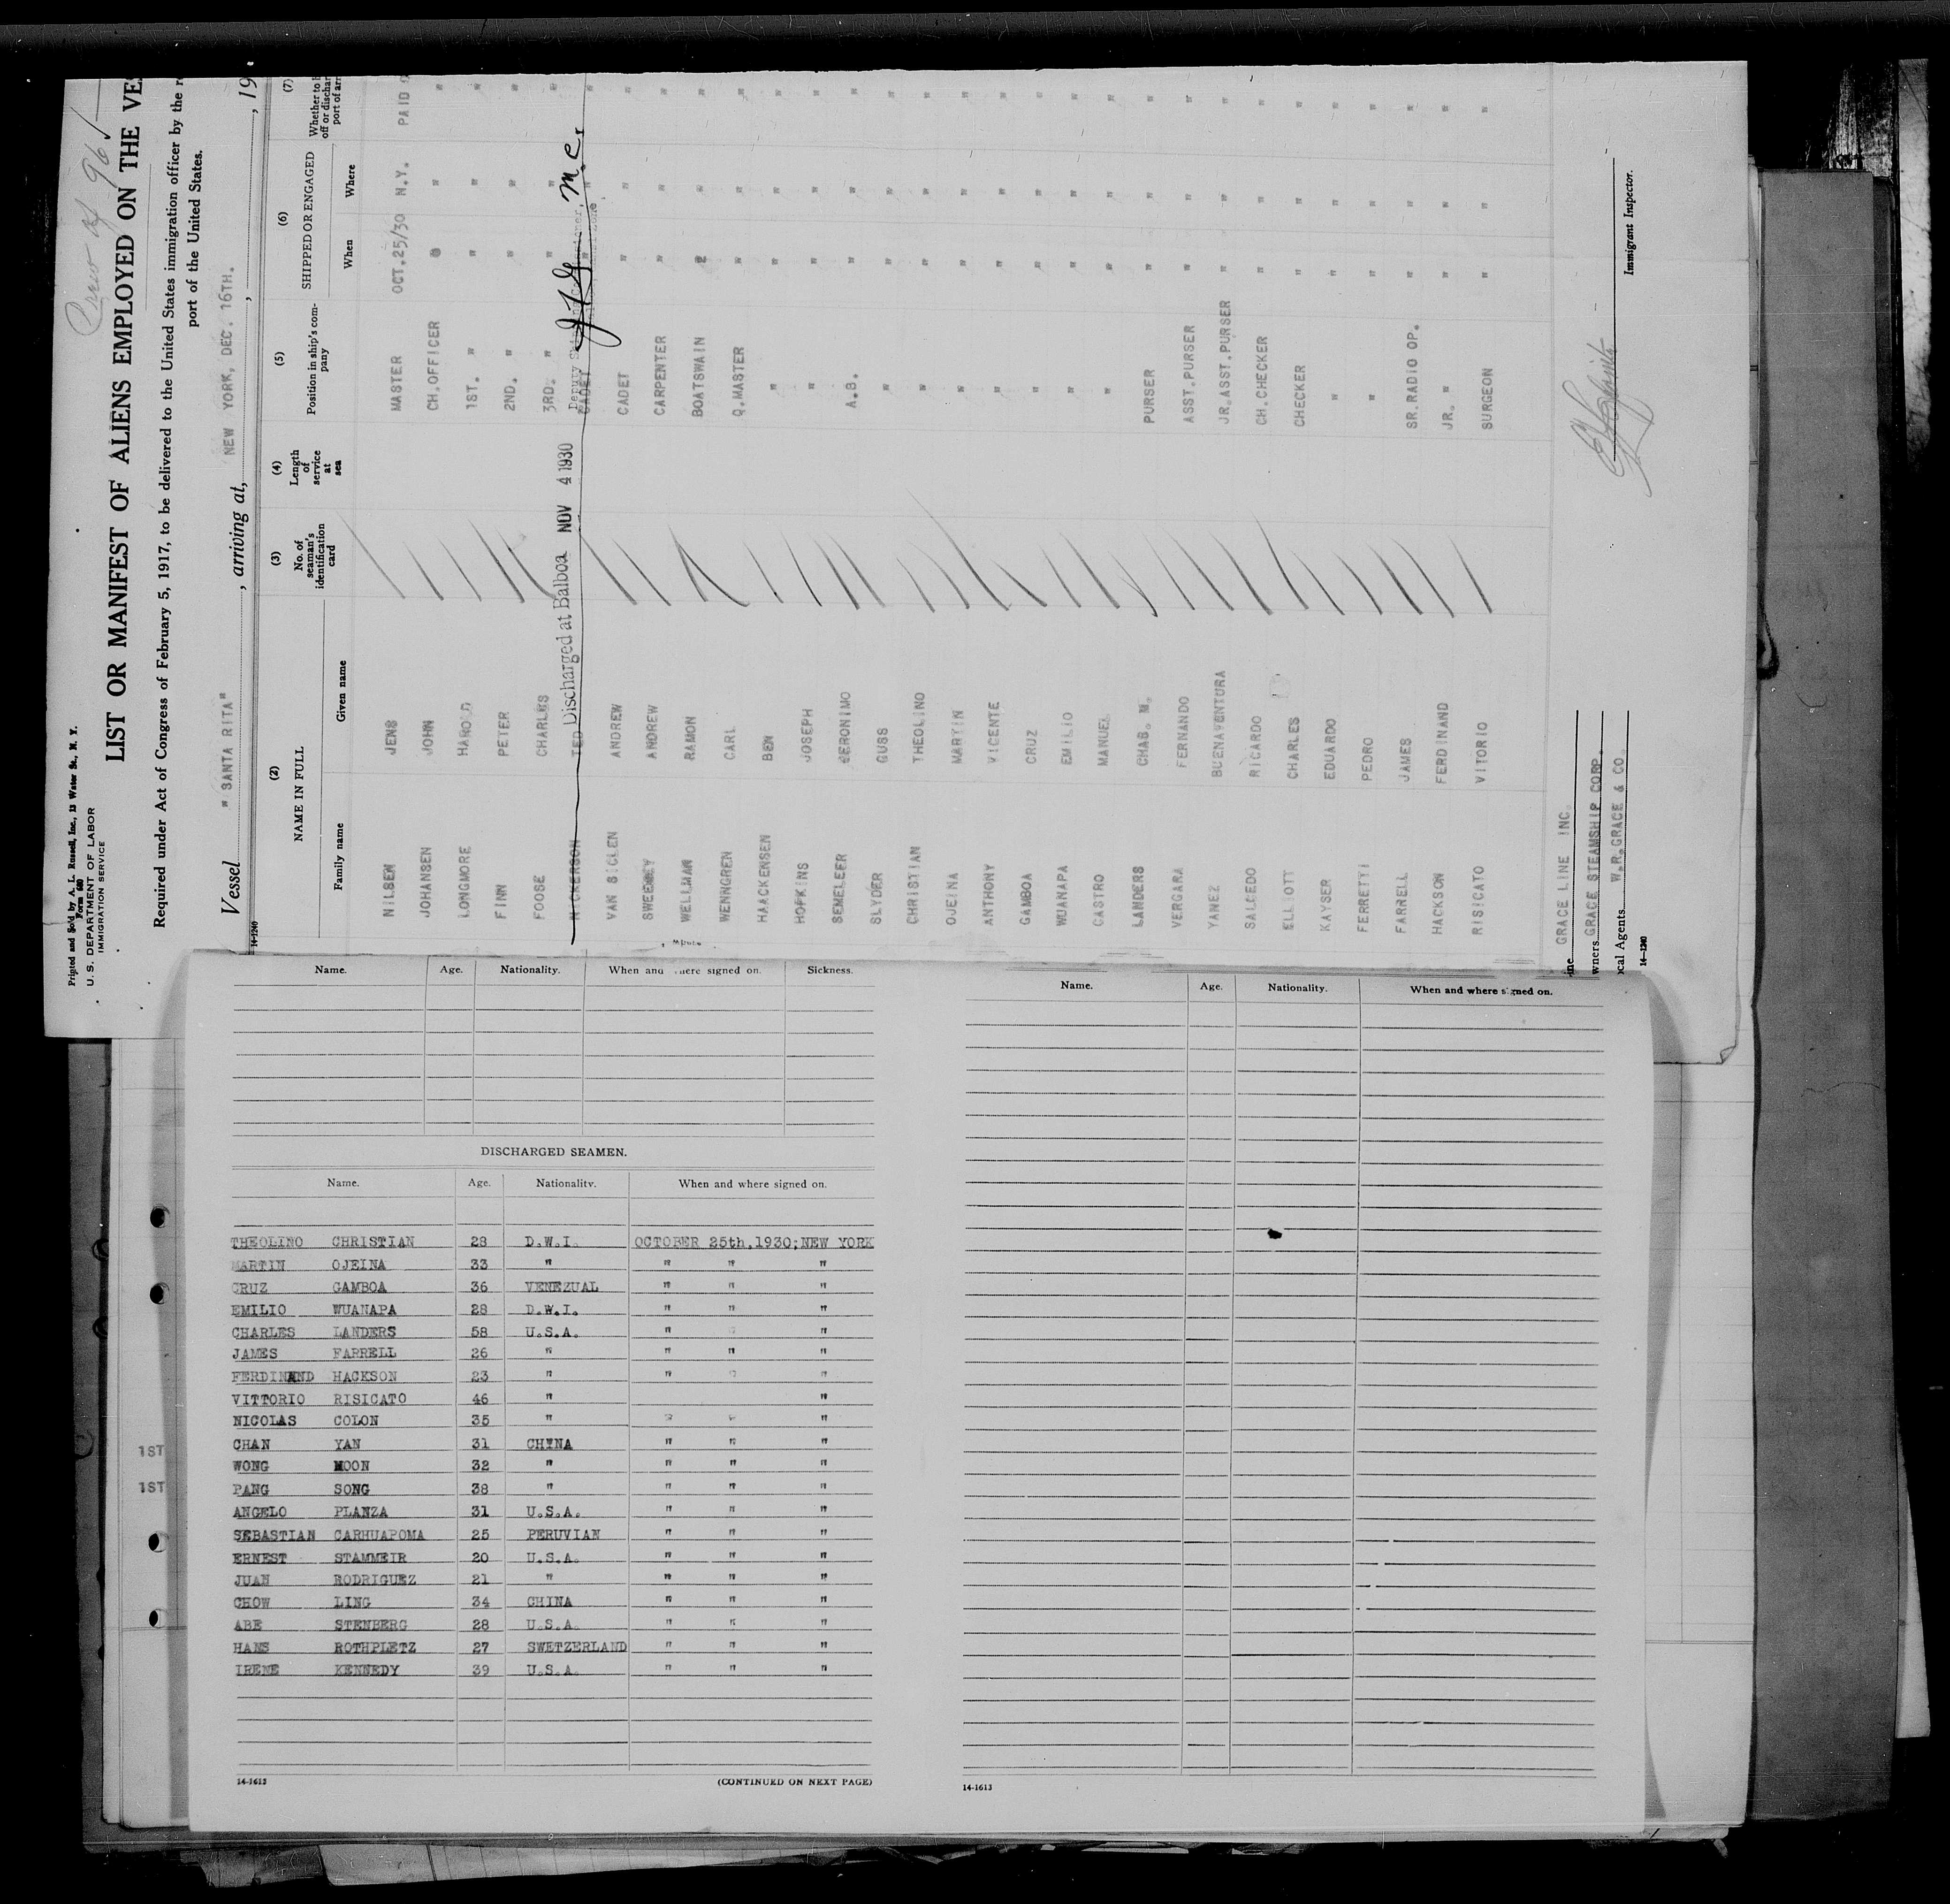 Crew of 96
Printed and Sold by A. L. Russell, Inc., 13 Water St., N. Y.
Form 680
U. S. DEPARTMENT OF LABOR
IMMIGRATION SERVICE
LIST OR MANIFEST OF ALIENS EMPLOYED ON THE VES
Required under Act of Congress of February 5, 1917, to be delivered to the United States immigration officer by the r
port of the United States.
Vessel " SANTA RITA" , arriving at, NEW YORK, DEC. 16TH. , 19
14-1240
(2) (3) (4) (5) (6) (7)
NAME IN FULL No. of seaman's identification card Length of service at sea Position in ship's company SHIPPED OR ENGAGED Whether to b off or dischar port of arr
Family name Given name When Where
NILSEN JENS MASTER OCT.25/30 N.Y. PAID
JOHANSEN JOHN CH.OFFICER " "
LONGMORE HAROLD 1ST. " " " "
FINN PETER 2ND. " " " "
FOOSE CHARLES 3RD. " " " "
NICKERSON TED Discharged at Balboa NOV 4 1930 CADET
VAN SICLEN ANDREW CADET " " "
SWEENEY ANDREW CARPENTER " " "
WELLMAN RAMON BOATSWAIN " " "
WENNGREN CARL Q.MASTER " " "
HAACKENSEN BEN " " " "
HOPKINS JOSEPH " " " "
SEMELER GERONIMO A.B. " " "
SLYDER GUSS " " " "
CHRISTIAN THEOLINO " " " "
OJEINA MARTIN " " " "
ANTHONY VICENTE " " " "
GAMBOA CRUZ " " " "
WUANAPA EMILIO " " " "
CASTRO MANUEL " " " "
LANDERS CHAS. M. PURSER " " "
VERGARA FERNANDO ASST.PURSER " " "
YANEZ BUENAVENTURA JR.ASST.PURSER " " "
SALCEDO RICARDO CH.CHECKER " " "
ELLIOTT CHARLES CHECKER " " "
KAYSER EDUARDO " " " "
FERRETTI PEDRO " " " "
FARRELL JAMES SR.RADIO OP. " " "
HACKSON FERDINAND JR. " " " "
RISICATO VITORIO SURGEON " " "
ine GRACE LINE INC.
wners GRACE STEAMSHIP CORP.
ocal Agents W.R.GRACE & CO.
14-1240
Immigrant Inspector.
Name. Age. Nationality. When and where signed on. Sickness.
DISCHARGED SEAMEN.
Name. Age. Nationality. When and where signed on.
THEOLINO CHRISTIAN 28 D.W.I. OCTOBER 25th,1930;NEW YORK
MARTIN OJEINA 33 " " " "
CRUZ GAMBOA 36 VENEZUAL " " "
EMILIO WUANAPA 28 D.W.I. " " "
CHARLES LANDERS 58 U.S.A. " " "
JAMES FARRELL 26 " " " "
FERDINAND HACKSON 23 " " " "
VITTORIO RISICATO 46 " "
NICOLAS COLON 35 " " " "
CHAN YAN 31 CHINA " " "
WONG MOON 32 " " " "
PANG SONG 38 " " " "
ANGELO PLANZA 31 U.S.A. " " "
SEBASTIAN CARHUAPOMA 25 PERUVIAN " " "
ERNEST STAMMEIR 20 U.S.A. " " "
JUAN RODRIGUEZ 21 " " " "
CHOW LING 34 CHINA " " "
ABE STENBERG 28 U.S.A. " " "
HANS ROTHPLETZ 27 SWETZERLAND " " "
IRENE KENNEDY 39 U.S.A. " " "
14-1613 (CONTINUED ON NEXT PAGE)
1ST
1ST
Name. Age. Nationality. When and where signed on.
14-1613